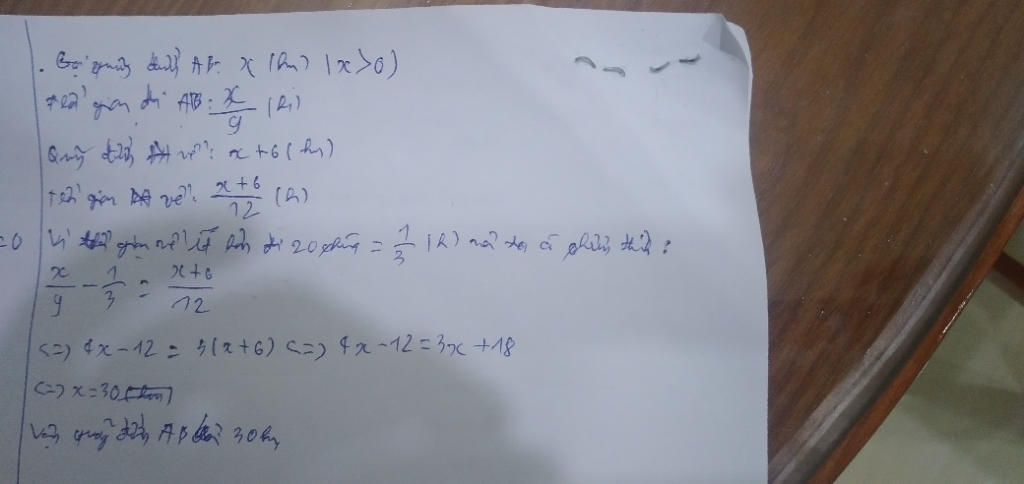 . Gọi quãng đường AB: x (km) (x>0)
thời gian đi AB: x/9 (h)
Quãng đường về: x+6 (km)
thời gian về: x+6/12 (h)
=0 Vì thời gian về ít hơn đi 20 phút = 1/3 (h) nên ta có phương trình:
x/9 - 1/3 = x+6/12
<=> 4x-12 = 3(x+6) <=> 4x-12=3x+18
<=> x=30
Vậy quãng đường AB dài 30km